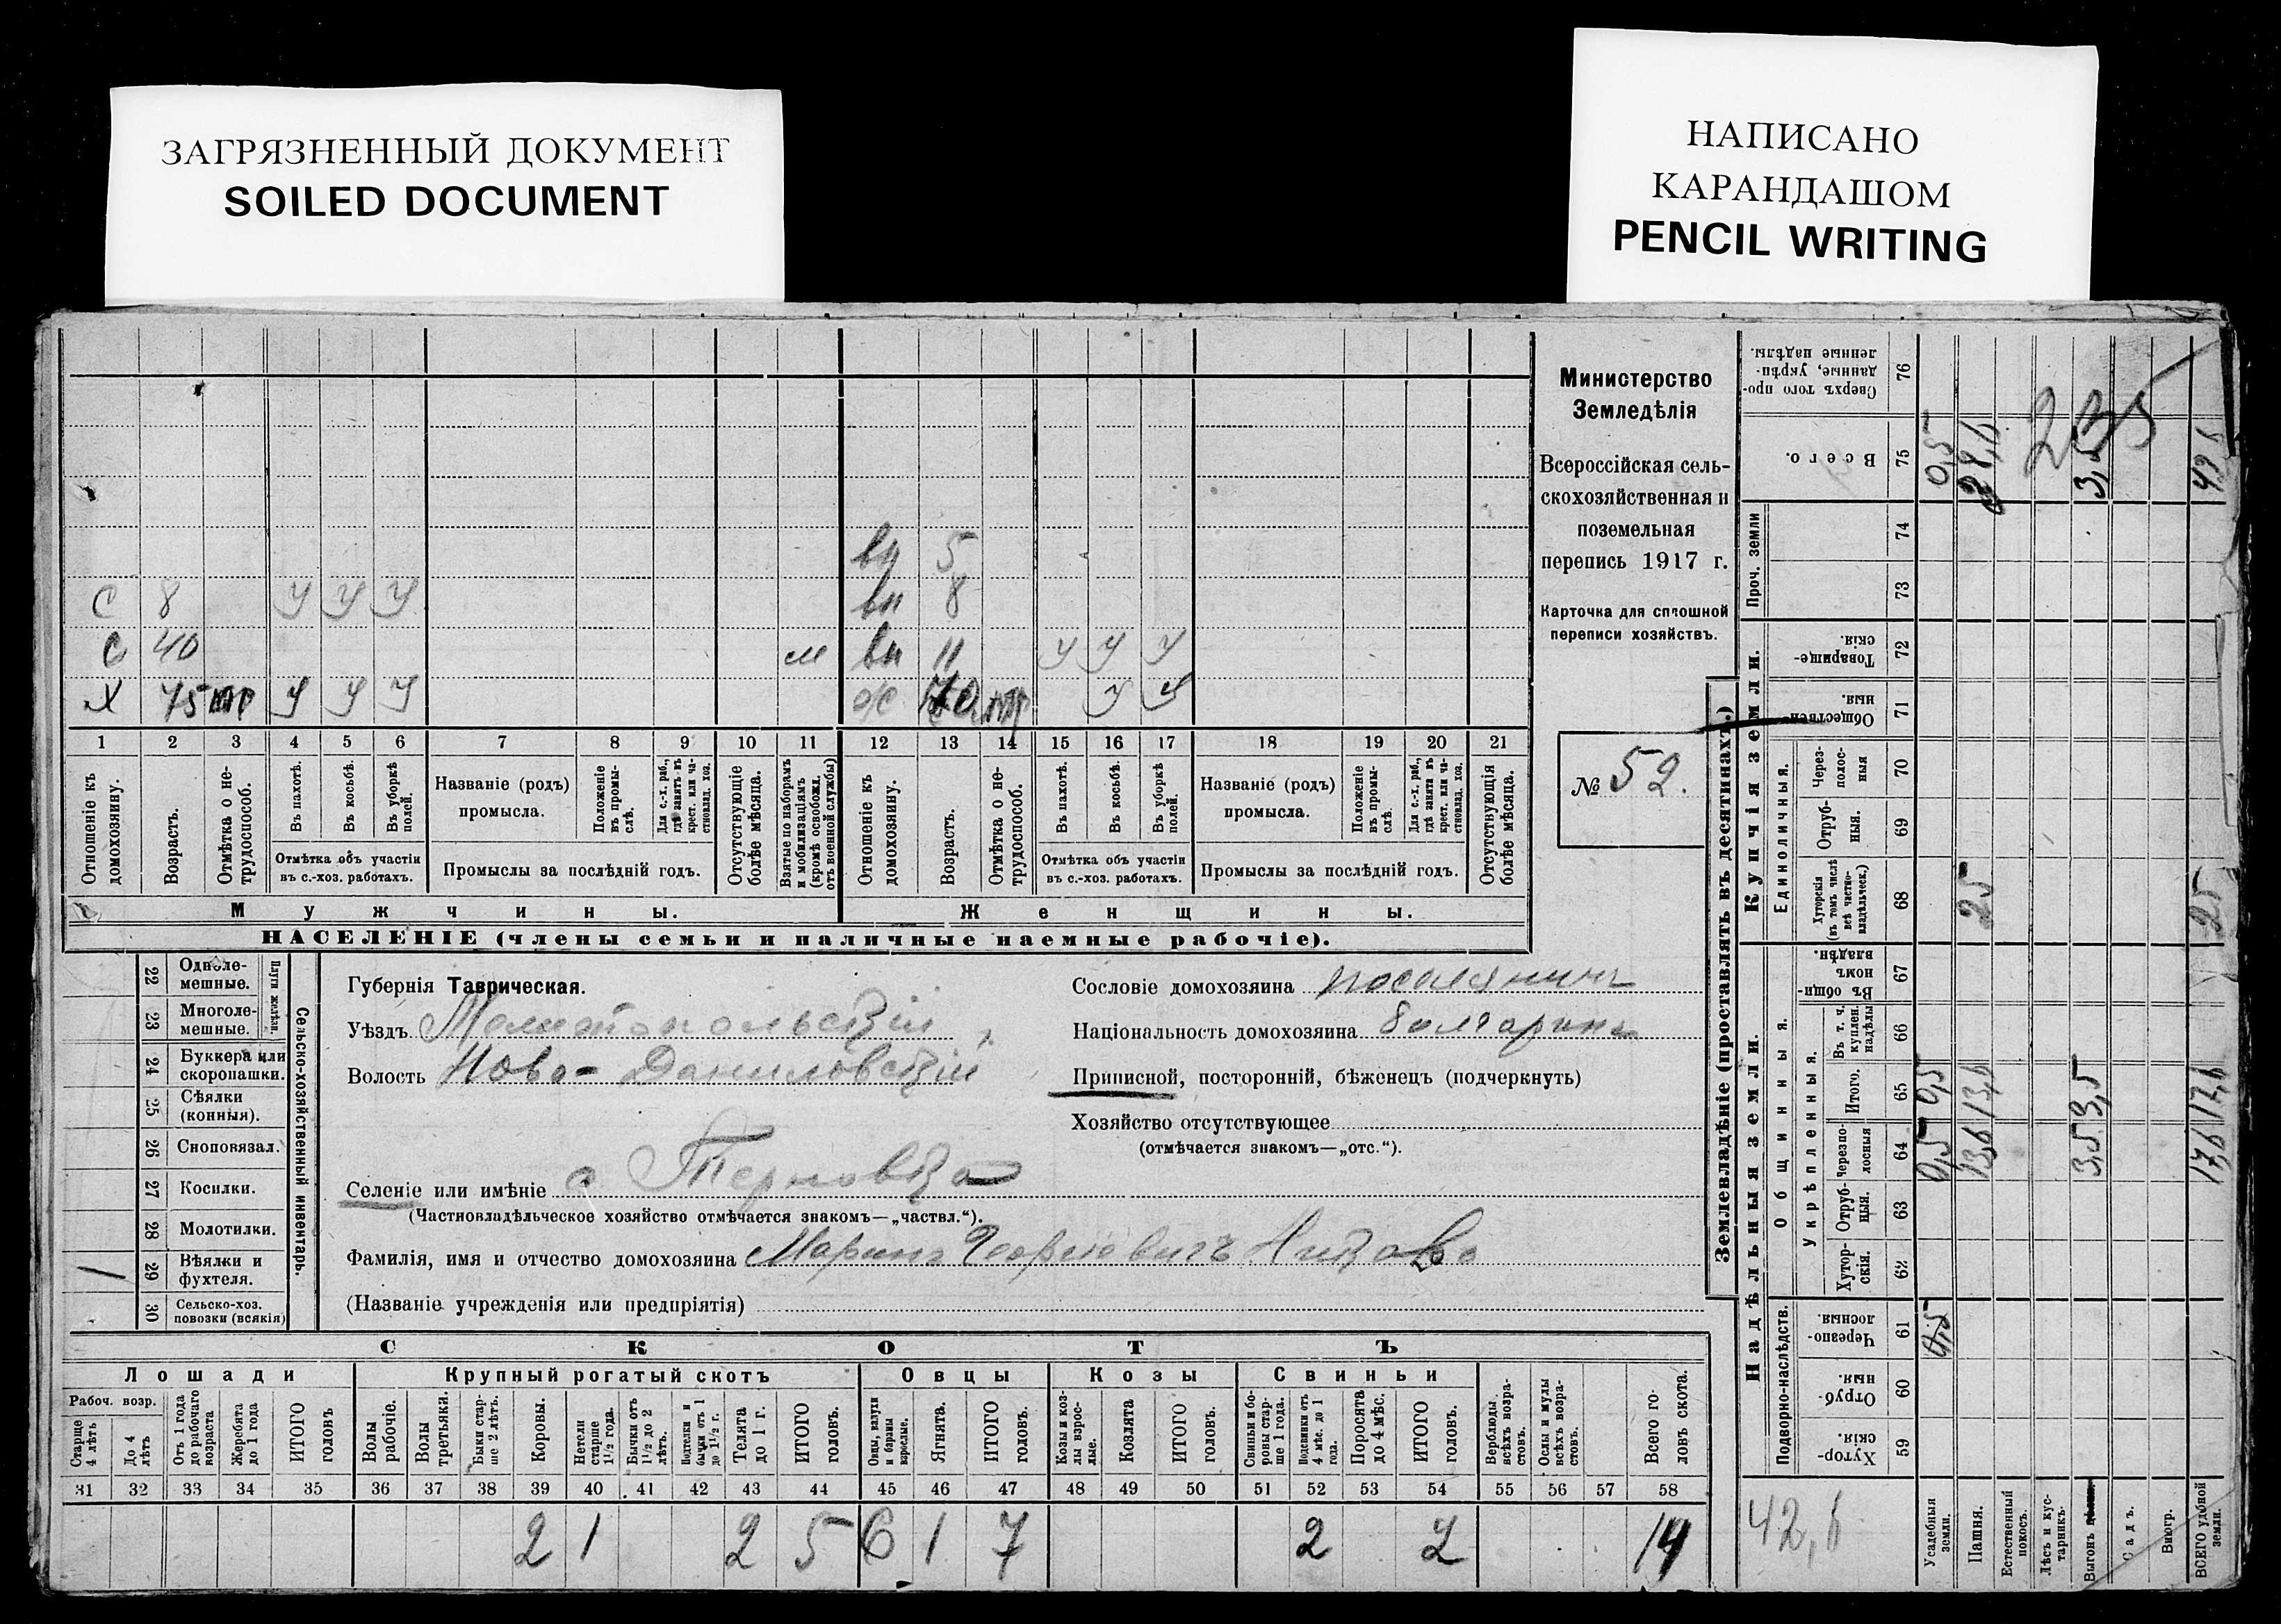 ЗАГРЯЗНЕННЫЙ ДОКУМЕНТ
SOILED DOCUMENT
НАПИСАНО
КАРАНДАШОМ
PENCIL WRITING
вн 5
С 8 У У У вн 8
С 40 м вн 11 У У У
Х 75 У У У ж 70 У У
1 2 3 4 5 6 7 8 9 10 11 12 13 14 15 16 17 18 19 20 21
Отношеніе къ домохозяину.
Возрастъ.
Отмѣтка о не-трудоспособ.
Въ пахотѣ.
Въ косьбѣ.
Въ уборкѣ полей.
Отмѣтка объ участіи
въ с.-хоз. работахъ.
Названіе (родъ)
промысла.
Положеніе въ промы-слѣ.
Для с.-х. раб., гдѣ занятъ въ крест. или ча-стновлад. хоз.
Промыслы за послѣдній годъ.
Отсутствующіе болѣе мѣсяца.
Взятые по наборамъ и мобилизаціямъ (кромѣ освобожд. отъ военной службы)
Отношеніе къ домохозяину.
Возрастъ.
Отмѣтка о не-трудоспособ.
Въ пахотѣ.
Въ косьбѣ.
Въ уборкѣ полей.
Отмѣтка объ участіи
въ с.-хоз. работахъ.
Названіе (родъ)
промысла.
Положеніе въ промы-слѣ.
Для с.-х. раб., гдѣ занята въ крест. или ча-стновлад. хоз.
Промыслы за послѣдній годъ.
Отсутствующія болѣе мѣсяца.
Мужчины. Женщины.
НАСЕЛЕНІЕ (члены семьи и наличные наемные рабочіе).
Министерство
Земледѣлія
Всероссійская сель-
скохозяйственная и
поземельная
перепись 1917 г.
Карточка для сплошной
переписи хозяйствъ.
№ 52.
22 Одноле-мешные.
23 Многоле-мешные.
Плуги желѣзн.
24 Буккера или скоропашки.
25 Сѣялки (конныя).
26 Сноповязал.
27 Косилки.
28 Молотилки.
29 Вѣялки и фухтеля.
30 Сельско-хоз. повозки (всякія)
Сельско-хозяйственный инвентарь.
Губернія Таврическая.
Уѣздъ Мелитопольскій
Волость Ново-Даниловскій
Селеніе или имѣніе с Терновка
(Частновладѣльческое хозяйство отмѣчается знакомъ—„частвл.“).
Фамилія, имя и отчество домохозяина Маринъ Георгіевичъ
(Названіе учрежденія или предпріятія)
Сословіе домохозяина поселянинъ
Національность домохозяина болгаринъ
Приписной, посторонній, бѣженецъ (подчеркнуть)
Хозяйство отсутствующее
(отмѣчается знакомъ—„отс.“).
СКОТЪ
Лошади Крупный рогатый скотъ Овцы Козы Свиньи
Рабоч. возр.
Старше 4 лѣтъ
До 4 лѣтъ
Отъ 1 года до рабочаго возраста
Жеребята до 1 года
ИТОГО головъ
Волы рабочіе.
Волы третьяки.
Быки стар-ше 2 лѣтъ.
Коровы.
Нетели старше 1½ года.
Бычки отъ 1½ до 2 лѣтъ.
Подтелки и бычки отъ 1 до 1½ г.
Телята до 1 г.
ИТОГО головъ.
Овцы, валухи и бараны взрослые.
Ягнята.
ИТОГО головъ.
Козы и коз-лы взрос-лые.
Козлята
ИТОГО головъ.
Свиньи и бо-ровы стар-ше 1 года.
Подсвинки отъ 4 мѣс. до 1 года.
Поросята до 4 мѣс.
ИТОГО головъ.
Верблюды всѣхъ возра-стовъ.
Ослы и мулы всѣхъ возра-стовъ.
Всего го-ловъ скота.
31 32 33 34 35 36 37 38 39 40 41 42 43 44 45 46 47 48 49 50 51 52 53 54 55 56 57 58
2 1 2 5 6 1 7 2 2 14
Землевладѣніе (проставлять въ десятинахъ.)
Надѣльныя земли. Купчія земли.
Подворно-наслѣдств.
Общинныя.
Укрѣпленныя.
Единоличныя.
Проч. земли
59 Хутор-скія.
60 Отруб-ныя.
61 Черезпо-лосныя.
62 Хутор-скія.
63 Отруб-ныя.
64 Черезпо-лосныя
65 Итого.
66 Въ т. ч. куплен. надѣлы
67 Въ общин-номъ владѣн.
68 Хуторскія (въ томъ числѣ всѣ частно-владѣльческ.)
69 Отруб-ныя.
70 Через-полос-ныя
71 Обществен-ныя.
72 Товарище-скія.
73
74
75 Всего.
76 Сверхъ того про-данные, укрѣп-ленные надѣлы.
Усадебныя земли. 0,5 0,5 0,5
Пашня. 13,6 13,6 25
Естественный покосъ.
Лѣсъ и кус-тарникъ.
Выгонъ 3,5 3,5 3,5
Садъ.
Виногр.
ВСЕГО удобной земли. 17,6 17,6 25
42,6